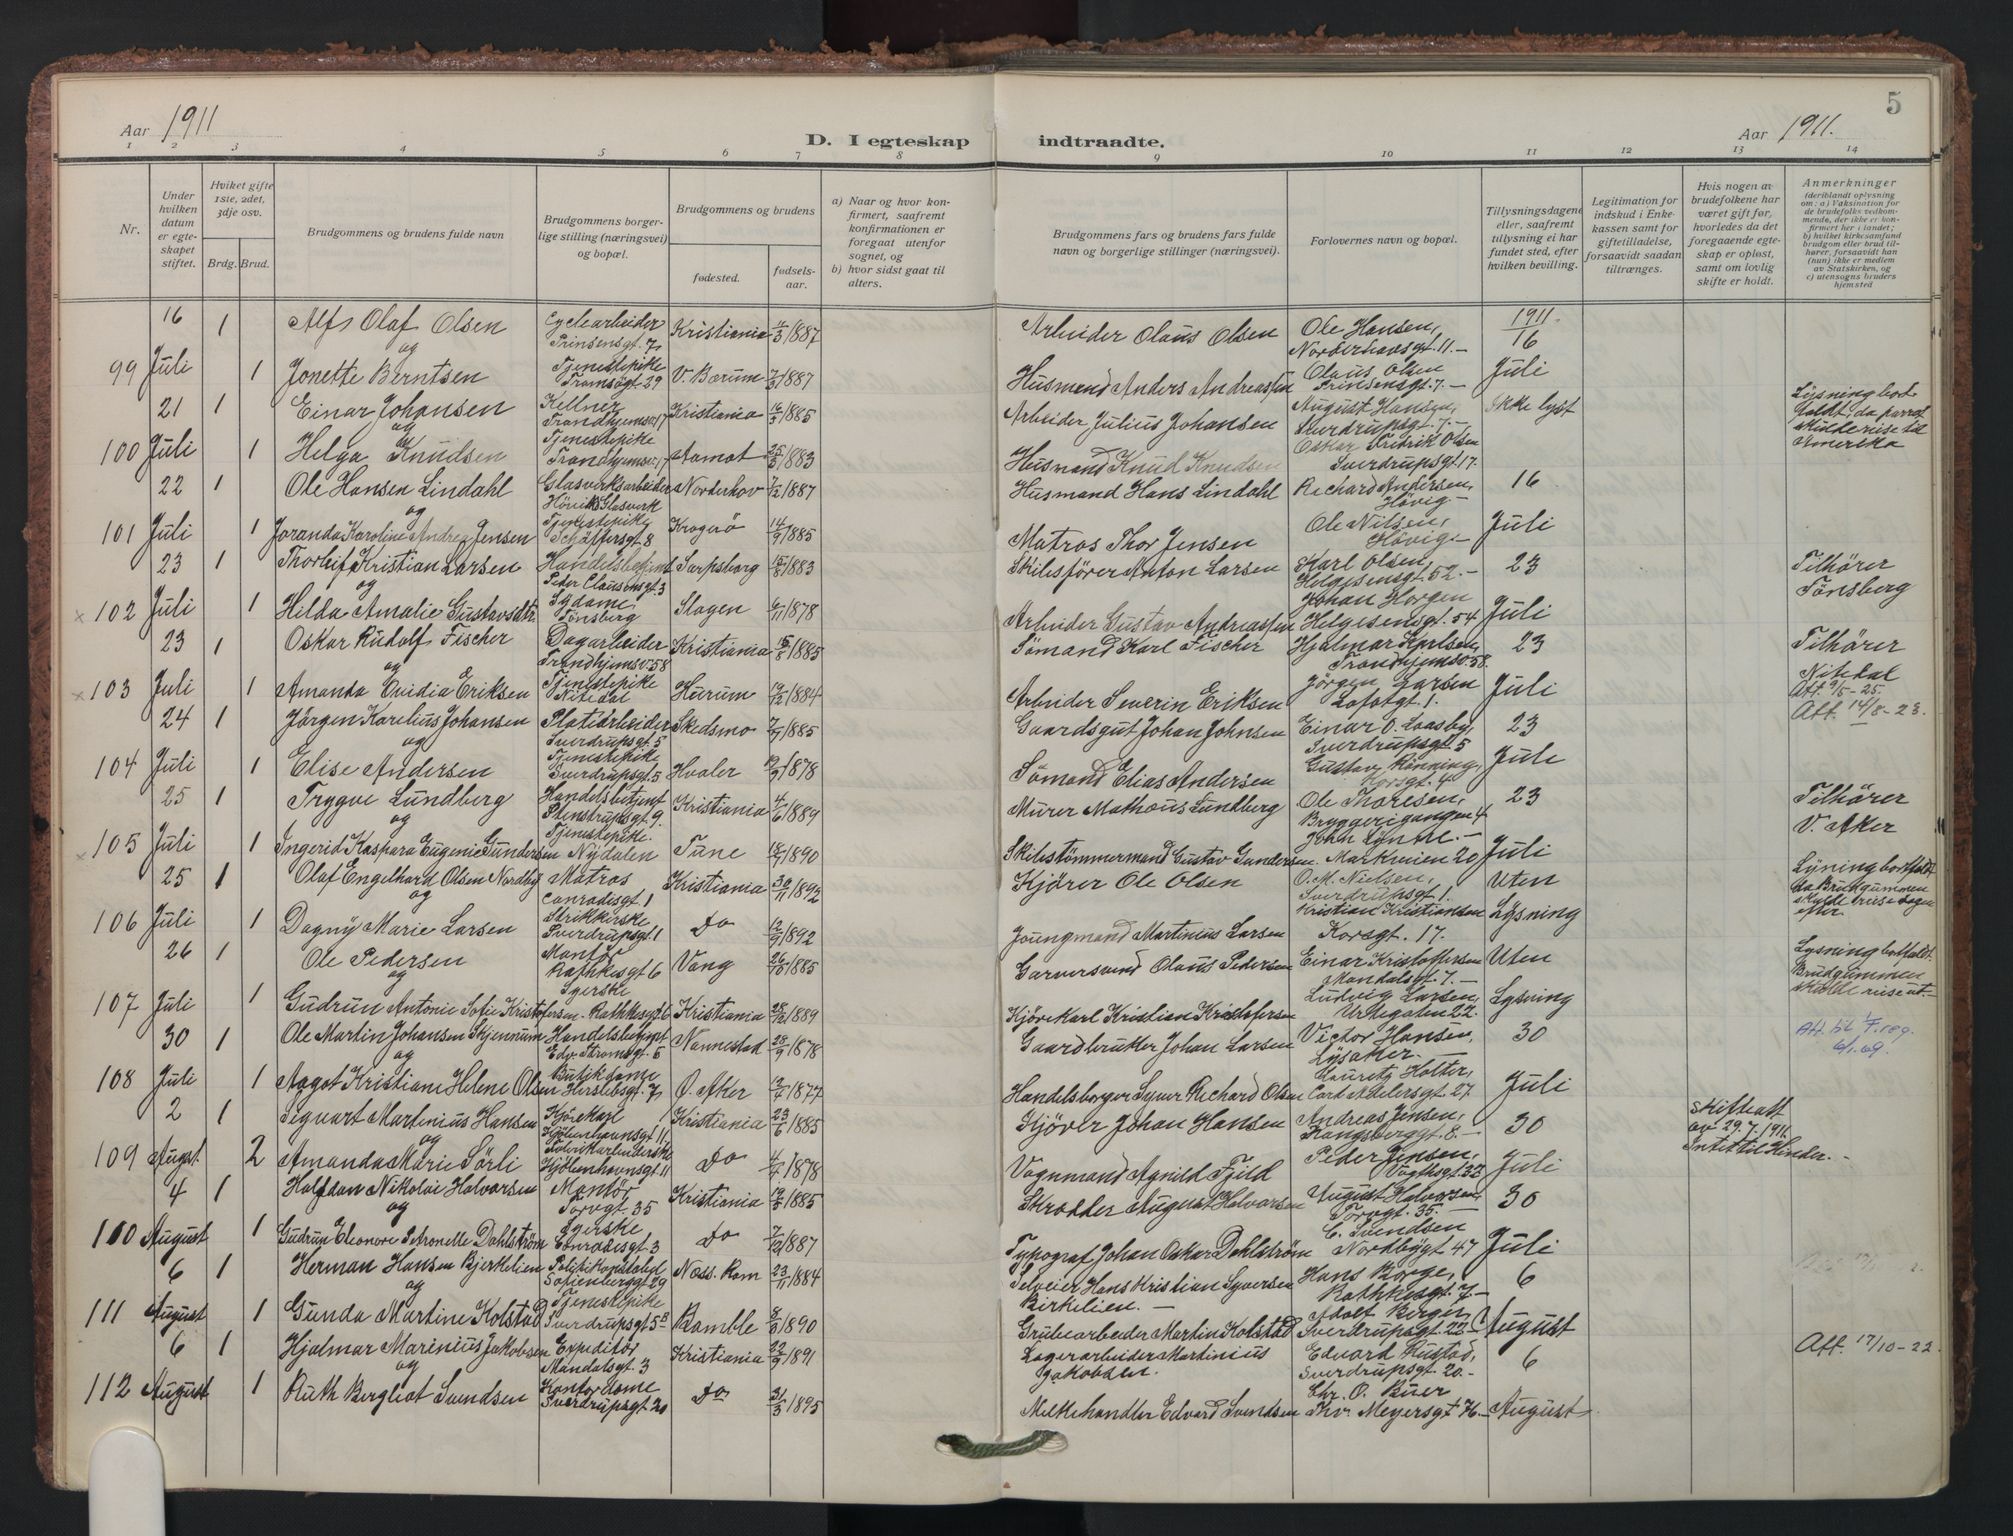 5
Aar 1911
D. I egteskap indtraadte.
Aar 1911.
1 2 3 4 5 6 7 8 9 10 11 12 13 14
Nr.
Under hvilken datum er egteskapet stiftet.
Hviket gifte 1ste, 2det, 3dje osv.
Brdg. Brud.
Brudgommens og brudens fulde navn
Brudgommens borgerlige stilling (næringsvei) og bopæl.
Brudgommens og brudens
fødested.
fødselsaar.
a) Naar og hvor konfirmert, saafremt konfirmationen er foregaat utenfor sognet, og
b) hvor sidst gaat til alters.
Brudgommens fars og brudens fars fulde navn og borgerlige stillinger (næringsvei).
Forlovernes navn og bopæl.
Tillysningsdagene eller, saafremt tillysning ei har fundet sted, efter hvilken bevilling.
Legitimation for indskud i Enkekassen samt for giftetilladelse, forsaavidt saadan tiltrænges.
Hvis nogen av brudefolkene har været gift før, hvorledes da det foregaaende egteskap er opløst, samt om lovlig skifte er holdt.
Anmerkninger
(deriblandt oplysning om: a) Vaksination for de brudefolks vedkommende, der ikke er konfirmert her i landet; b) hvilket kirkesamfund brudgom eller brud tilhører, forsaavidt han (hun) ikke er medlem av Statskirken, og c) utensogns bruders hjemsted
16 1 Alf Olaf Olsen Cyclearbeider Prinsensgt. 7 Kristiania 1887 Arbeider Olaus Olsen Ole Hansen, Norderhovsgt. 11.- 1911. 16
og
99 Juli 1 Jonette Berntsen Tjenestepike Tromsøgt. 29 V. Bærum 1887 Husmand Anders Andreassen Olaus Olsen Prinsensgt. 7.- Juli
21 1 Einar Johansen Kellner Trondhjemsv. 17 Kristiania 1885 Arbeider Julius Johansen August Hansen, Sverdrupsgt. 7.- Ikke lyst
og
100 Juli 1 Helga Knudsen Tjenestepike Trondhjemsv. 17 Aamot 25/5 1883 Husmand Knud Knudsen Oskar Fredrik Olsen Sverdrupsgt. 17.
22 1 Ole Hansen Lindahl Glasverksarbeider Höviks Glasverk Norderhov 7/12 1887 Husmand Hans Lindahl Richard Andersen, Hövig.- 16
og
101 Juli 1 Karoline Andrea Jensen Tjenestepike Schäffersgt. 8 Kragerö 14/9 1885 Matros Thor Jensen Ole Nilsen, Hövig.- Juli
23 1 Thorleif Kristian Larsen Handelsbetjent Peder Claussensgt. 3 Sarpsborg 1883 Skibsförer Anton Larsen Karl Olsen, Helgesensgt. 52.- 23 Tilhörer Tönsberg
og
× 102 Juli 1 Hilda Amalie Gustavsdtr. Sydame, Tönsberg Slagen 6/11 1878 Arbeider Gustav Andreassen Johan Horgen Helgesensgt. 54 Juli
23 1 Oskar Rudolf Fischer Dagarbeider Trondhjemsv. 58 Kristiania 15/8 1885 Sömand Karl Fischer Hjalmar Karlsen, Trondhjemsv. 58. 23 Tilhörer Nitedal
og
× 103 Juli 1 Amanda Ovidia Eriksen Tjenestepike Nitedal Hurum 1884 Arbeider Severin Eriksen Jörgen Larsen Lofotgt. 1. Juli Att. 9/5-25. Att. 14/8-23.
24 1 Jörgen Karelius Johansen Platearbeider Sverdrupsgt. 5 Skedsmo 1885 Gaardsgut Johan Johnsen Einar O. Laasby, Sverdrupsgt. 5 23
og
104 Juli 1 Elise Andersen Tjenestepike Sverdrupsgt. 5 Hvaler 1878 Sömand Elias Andersen Gustav Rönning, Korsgt. 4 Juli
25 1 Trygve Lundberg Handelsbetjent Stenstrupsgt. 9. Kristiania 4/6 1889 Murer Mathæus Lundberg Ole Thoresen, Bryggerigangen 4 23 Tilhörer V. Aker
og
× 105 Juli 1 Ingerid Kaspara Eugenie Gundersen Tjenestepike. Nydalen Tune 1890 Skibstömmermand Gustav Gundersen. Markveien 20 Juli
25 1 Olaf Engelhard Olsen Nordby Matros Conradisgt. 1 Kristiania 30/11 1892 Kjörer Ole Olsen O. M. Nielsen, Sverdrupsgt. 1. Uten Lysning bortfaldt da Brudgummen skulde reise dagen efter.
og
106 Juli 1 Dagny Marie Larsen Strikkerske Sverdrupsgt. 1 Do 12/9 1892 Joungmand Martinius Larsen Kristian Kristiansen Korsgt. 17. Lysning
26 1 Ole Pedersen Montör Rathkesgt 6 Vang 26/10 1885 Garversvend Olaus Pedersen Einar Kristoffersen Mandalsgt. 7.- Uten Lysning bortfaldt. Brudgummen skulde reise ut.-
og
107 Juli 1 Gudrun Antonie Sofie Kristofersen. Syerske Rathkesgt 6 Kristiania 28/12 1889 Kjörekarl Kristian Kristofersen Ludvig Larsen, Urtegaten 22. Lysning
30 1 Ole Martin Johansen Skjennum Handelsbetjent Edv. Stormsgt. 5 Nannestad 28/9 1878 Gaardbruker Johan Larsen Victor Hansen, Lysaker.- 30 Att. til f.reg. 6/1.69.
og
108 Juli 1 Aagot Kristiane Helene Olsen Butikdame Herslebsgt. 7 Ö. Aker 1877 Handelsborger Syver Richard Olsen Lauritz Holter, Cort Adelersgt. 27. Juli
2 1 Sigvart Martinius Hansen Kjörekarl Kjöbenhavnsgt 11. Kristiania 23/6 1885 Kjörer Johan Hansen Andreas Jensen, Kongsberggt. 8.- 30 Skifteatt av 29.7.1911. Intet til Hinder.-
og
109 Augst. 2 Amanda Marie Sörli Kjöbenhavnsgt. 11 Do 1878 Vognmand Agnild Fjeld Peder Jensen, Vogtsgt. 32 Juli
4 1 Halfdan Nikolai Halvorsen Montör Torvgt. 35 Kristiania 1885 Skrædder August Halvorsen August Halvorsen, Torvgt. 35.- 30
og
110 August 1 Gudrun Eleonore Petronelle Dahlström Syerske Conradisgt. 3 Do 7/12 1887 Typograf Johan Oskar Dahlström C. Svendsen Nordbygt 47 Juli
6 1 Herman Hansen Bjerkelien Politikonstabel Sofienberggt 29 Næss. Rom 23/11 1884 Selveier Hans Kristian Syversen Birkelien.- Hans Borge, Rathkesgt. 7.- 6
og
111 August 1 Gunda Martine Kolstad Tjenestepike Sverdrupsgt 5B Bamble 1890 Grubearbeider Martin Kolstad Adolf Bergen, Sverdrupsgt. 22.- August
6 1 Hjalmar Marenius Jakobsen Expeditör Mandalsgt. 3 Kristiania 22/9 1891 Lagerarbeider Martinius Jakobsen. Edvard Rustad, Sverdrupsgt. 20.- 6 Att. 17/10-22.
og
112 August 1 Ruth Bergliot Svendsen Kontordame Sverdrupsgt 20 Do 31/3 1895 Melkehandler Edvard Svendsen Chr. O. Buer Thv. Meyersgt 76.- August